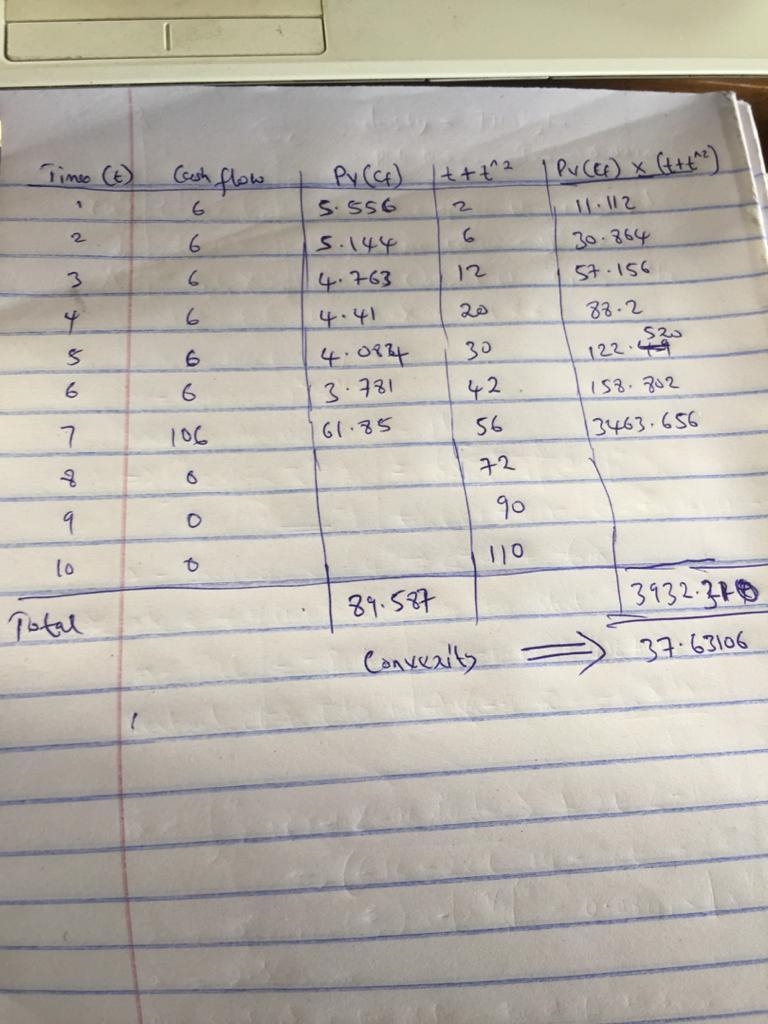 Time (t) Cash flow Pv(Cf) t+t^2 Pv(Cf) x (t+t^2)
1 6 5.556 2 11.112
2 6 5.144 6 30.864
3 6 4.763 12 57.156
4 6 4.41 20 88.2
520
5 6 4.084 30 122.49
6 6 3.781 42 158.802
7 106 61.85 56 3463.656
8 0 72
9 0 90
10 0 110
Total 89.587
Convexity ⟹ 37.63106